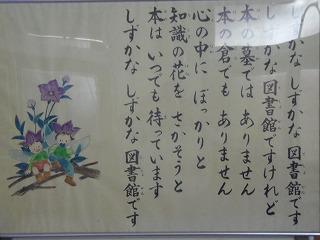 しずかな しずかな 図書館です
しずかな 図書館ですけれど
本の墓では ありません
本の倉でも ありません
心の中に ぽっかりと
知識の花を さかそうと
本は いつでも 待っています
しずかな しずかな 図書館です